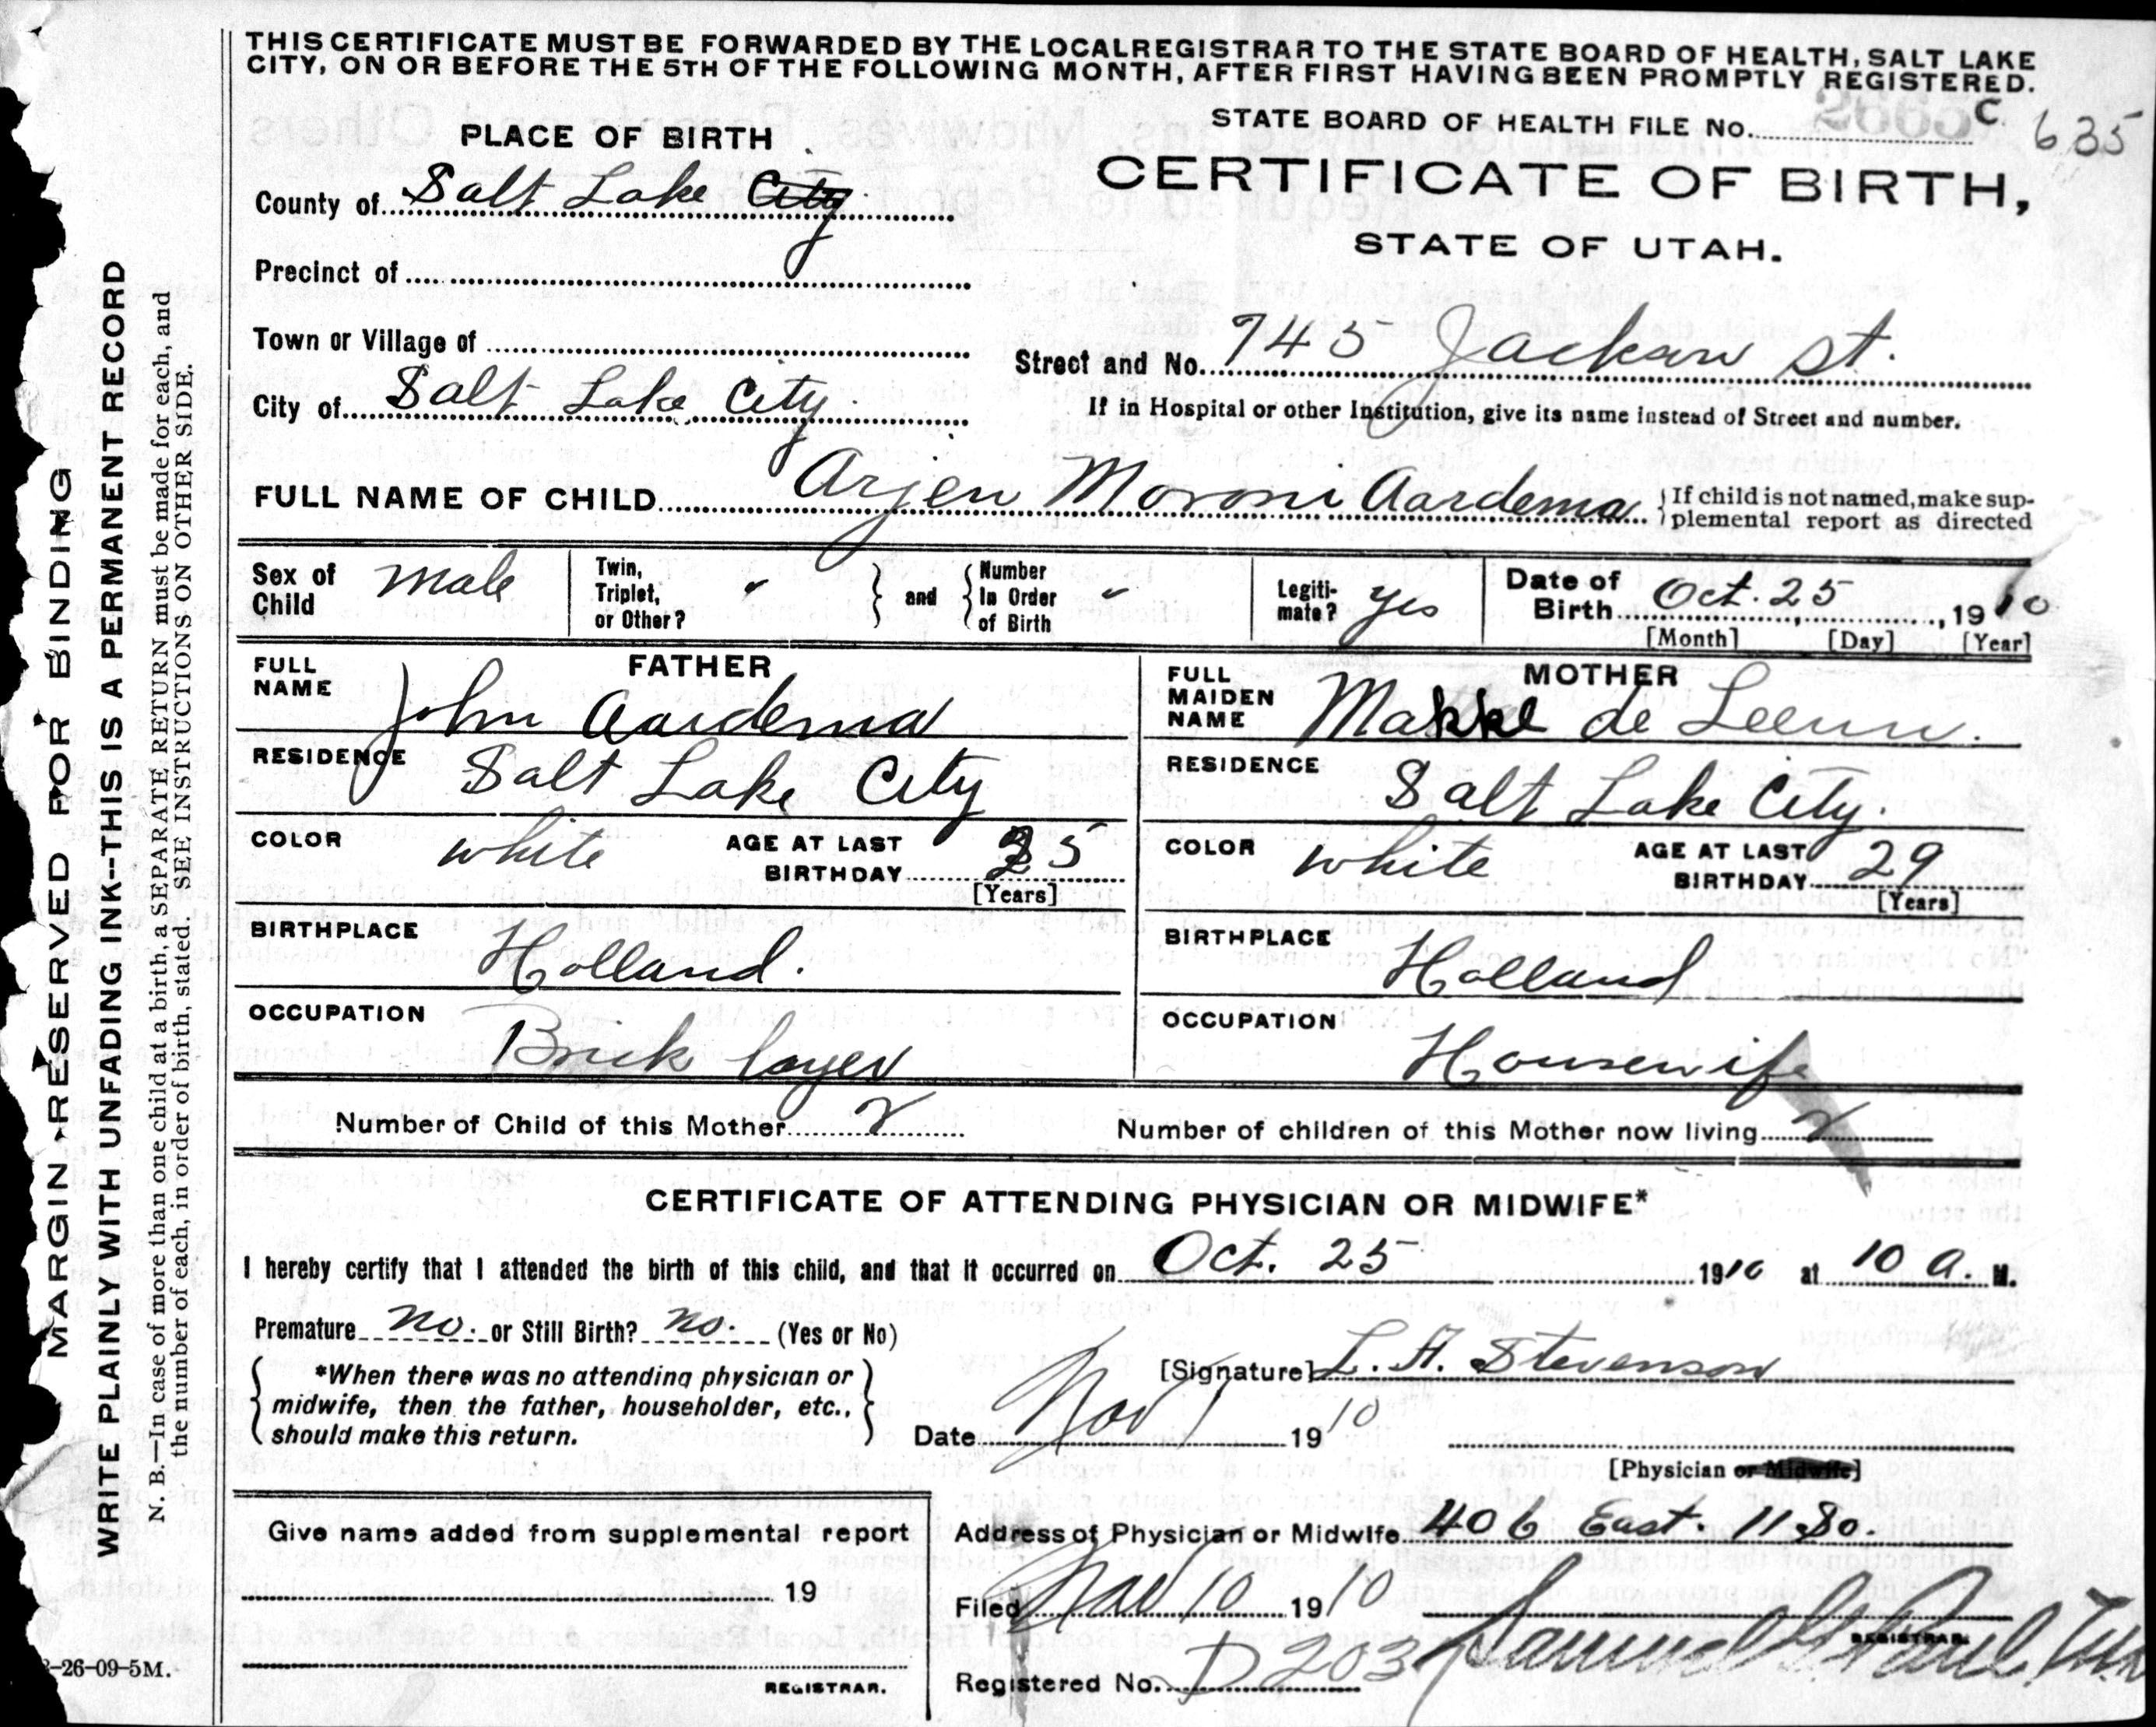 THIS CERTIFICATE MUST BE FORWARDED BY THE LOCAL REGISTRAR TO THE STATE BOARD OF HEALTH, SALT LAKE
CITY, ON OR BEFORE THE 5TH OF THE FOLLOWING MONTH, AFTER FIRST HAVING BEEN PROMPTLY REGISTERED.
STATE BOARD OF HEALTH FILE No. C 635
PLACE OF BIRTH
CERTIFICATE OF BIRTH,
STATE OF UTAH.
County of Salt Lake City
Precinct of
Town or Village of
Street and No. 745 Jackson St.
City of Salt Lake City
If in Hospital or other Institution, give its name instead of Street and number.
FULL NAME OF CHILD Arjen Moroni Aardema { If child is not named, make sup-
plemental report as directed
Sex of Child Male
Twin, Triplet, or Other? " } and { Number In Order of Birth "
Legiti-mate? yes
Date of Birth Oct. 25, 1910
[Month] [Day] [Year]
FATHER
FULL NAME John Aardema
RESIDENCE Salt Lake City
COLOR white AGE AT LAST BIRTHDAY 35
[Years]
BIRTHPLACE Holland.
OCCUPATION Brick layer
MOTHER
FULL MAIDEN NAME Makke de Leeuw.
RESIDENCE Salt Lake City.
COLOR white AGE AT LAST BIRTHDAY 29
[Years]
BIRTHPLACE Holland
OCCUPATION Housewife
Number of Child of this Mother 2 Number of children of this Mother now living 2
CERTIFICATE OF ATTENDING PHYSICIAN OR MIDWIFE*
I hereby certify that I attended the birth of this child, and that it occurred on Oct. 25 1910 at 10 a. M.
Premature no. or Still Birth? no. (Yes or No)
*When there was no attending physician or
midwife, then the father, householder, etc.,
should make this return.
[Signature] L. H. Stevenson
Date Nov 1 1910
[Physician or Midwife]
Give name added from supplemental report
19
REGISTRAR.
Address of Physician or Midwife 406 East. 11 So.
Filed Nov 10 1910
Samuel G Paul
REGISTRAR.
Registered No. D203
-26-09-5M.
MARGIN RESERVED FOR BINDING
WRITE PLAINLY WITH UNFADING INK--THIS IS A PERMANENT RECORD
N. B.—In case of more than one child at a birth, a SEPARATE RETURN must be made for each, and
the number of each, in order of birth, stated. SEE INSTRUCTIONS ON OTHER SIDE.